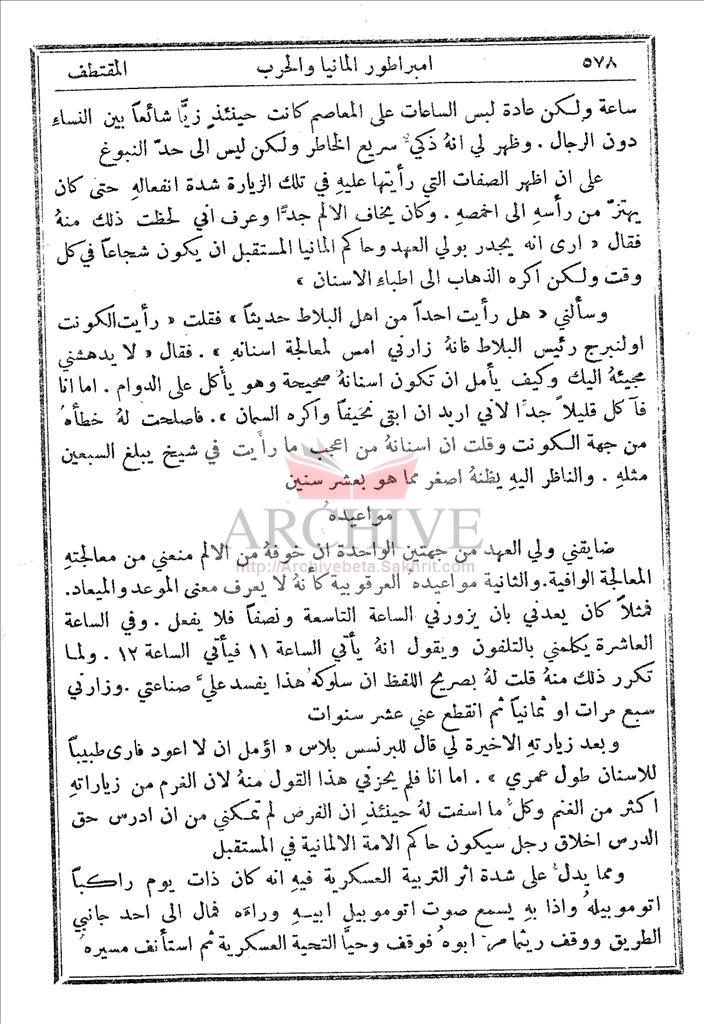 ٥٧٨ امبراطور المانيا والحرب المقتطف
ساعة ولكن عادة لبس الساعات على المعاصم كانت حينئذٍ زيًّا شائعاً بين النساءِ
دون الرجال . وظهر لي انهُ ذكيٌّ سريع الخاطر ولكن ليس الى حدّ النبوغ
على ان اظهر الصفات التي رأيتها عليهِ في تلك الزيارة شدة انفعالهِ حتى كان
يهتزّ من رأسهِ الى اخمصهِ . وكان يخاف الالم جدًّا وعرف اني لحظت ذلك منهُ
فقال « ارى انه يجدر بولي العهد وحاكم المانيا المستقبل ان يكون شجاعاً في كل
وقت ولكن اكره الذهاب الى اطباءِ الاسنان »
وسألني « هل رأيت احداً من اهل البلاط حديثاً » فقلت « رأيت الكونت
اولنبرج رئيس البلاط فانهُ زارني امس لمعالجة اسنانهِ » . فقال « لا يدهشني
مجيئهُ اليك وكيف يأمل ان تكون اسنانهُ صحيحة وهو يأكل على الدوام . اما انا
فآكل قليلاً جدًّا لاني اريد ان ابقى نحيفاً واكره السمان » . فاصلحت لهُ خطأهُ
من جهة الكونت وقلت ان اسنانهُ من اعجب ما رأيت في شيخ يبلغ السبعين
مثلهِ . والناظر اليهِ يظنهُ اصغر مما هو بعشر سنين
مواعيدهُ
ضايقني ولي العهد من جهتين الواحدة ان خوفهُ من الالم منعني من معالجتهِ
المعالجة الوافية. والثانية مواعيدهُ العرقوبية كانهُ لا يعرف معنى الموعد والميعاد.
فمثلاً كان يعدني بان يزورني الساعة التاسعة ونصفاً فلا يفعل . وفي الساعة
العاشرة يكلمني بالتلفون ويقول انهُ يأتي الساعة ١١ فيأتي الساعة ١٢ . ولما
تكرر ذلك منهُ قلت لهُ بصريح اللفظ ان سلوكهُ هذا يفسد عليَّ صناعتي . وزارني
سبع مرات او ثمانياً ثم انقطع عني عشر سنوات
وبعد زيارتهِ الاخيرة لي قال للبرنسس بلاس « اؤمل ان لا اعود فارى طبيباً
للاسنان طول عمري » . اما انا فلم يحزني هذا القول منهُ لان الغرم من زياراتهِ
اكثر من الغنم وكلُّ ما اسفت لهُ حينئذٍ ان الفرص لم تمكني من ان ادرس حق
الدرس اخلاق رجل سيكون حاكم الامة الالمانية في المستقبل
ومما يدلُّ على شدة اثر التربية العسكرية فيهِ انه كان ذات يوم راكباً
اتوموبيلهُ واذا بهِ يسمع صوت اتوموبيل ابيهِ وراءه فمال الى احد جانبي
الطريق ووقف ريثما مرَّ ابوهُ فوقف وحيَّا التحية العسكرية ثم استأنف مسيرهُ
ARCHIVE
http://Archivebeta.Sakhrit.com